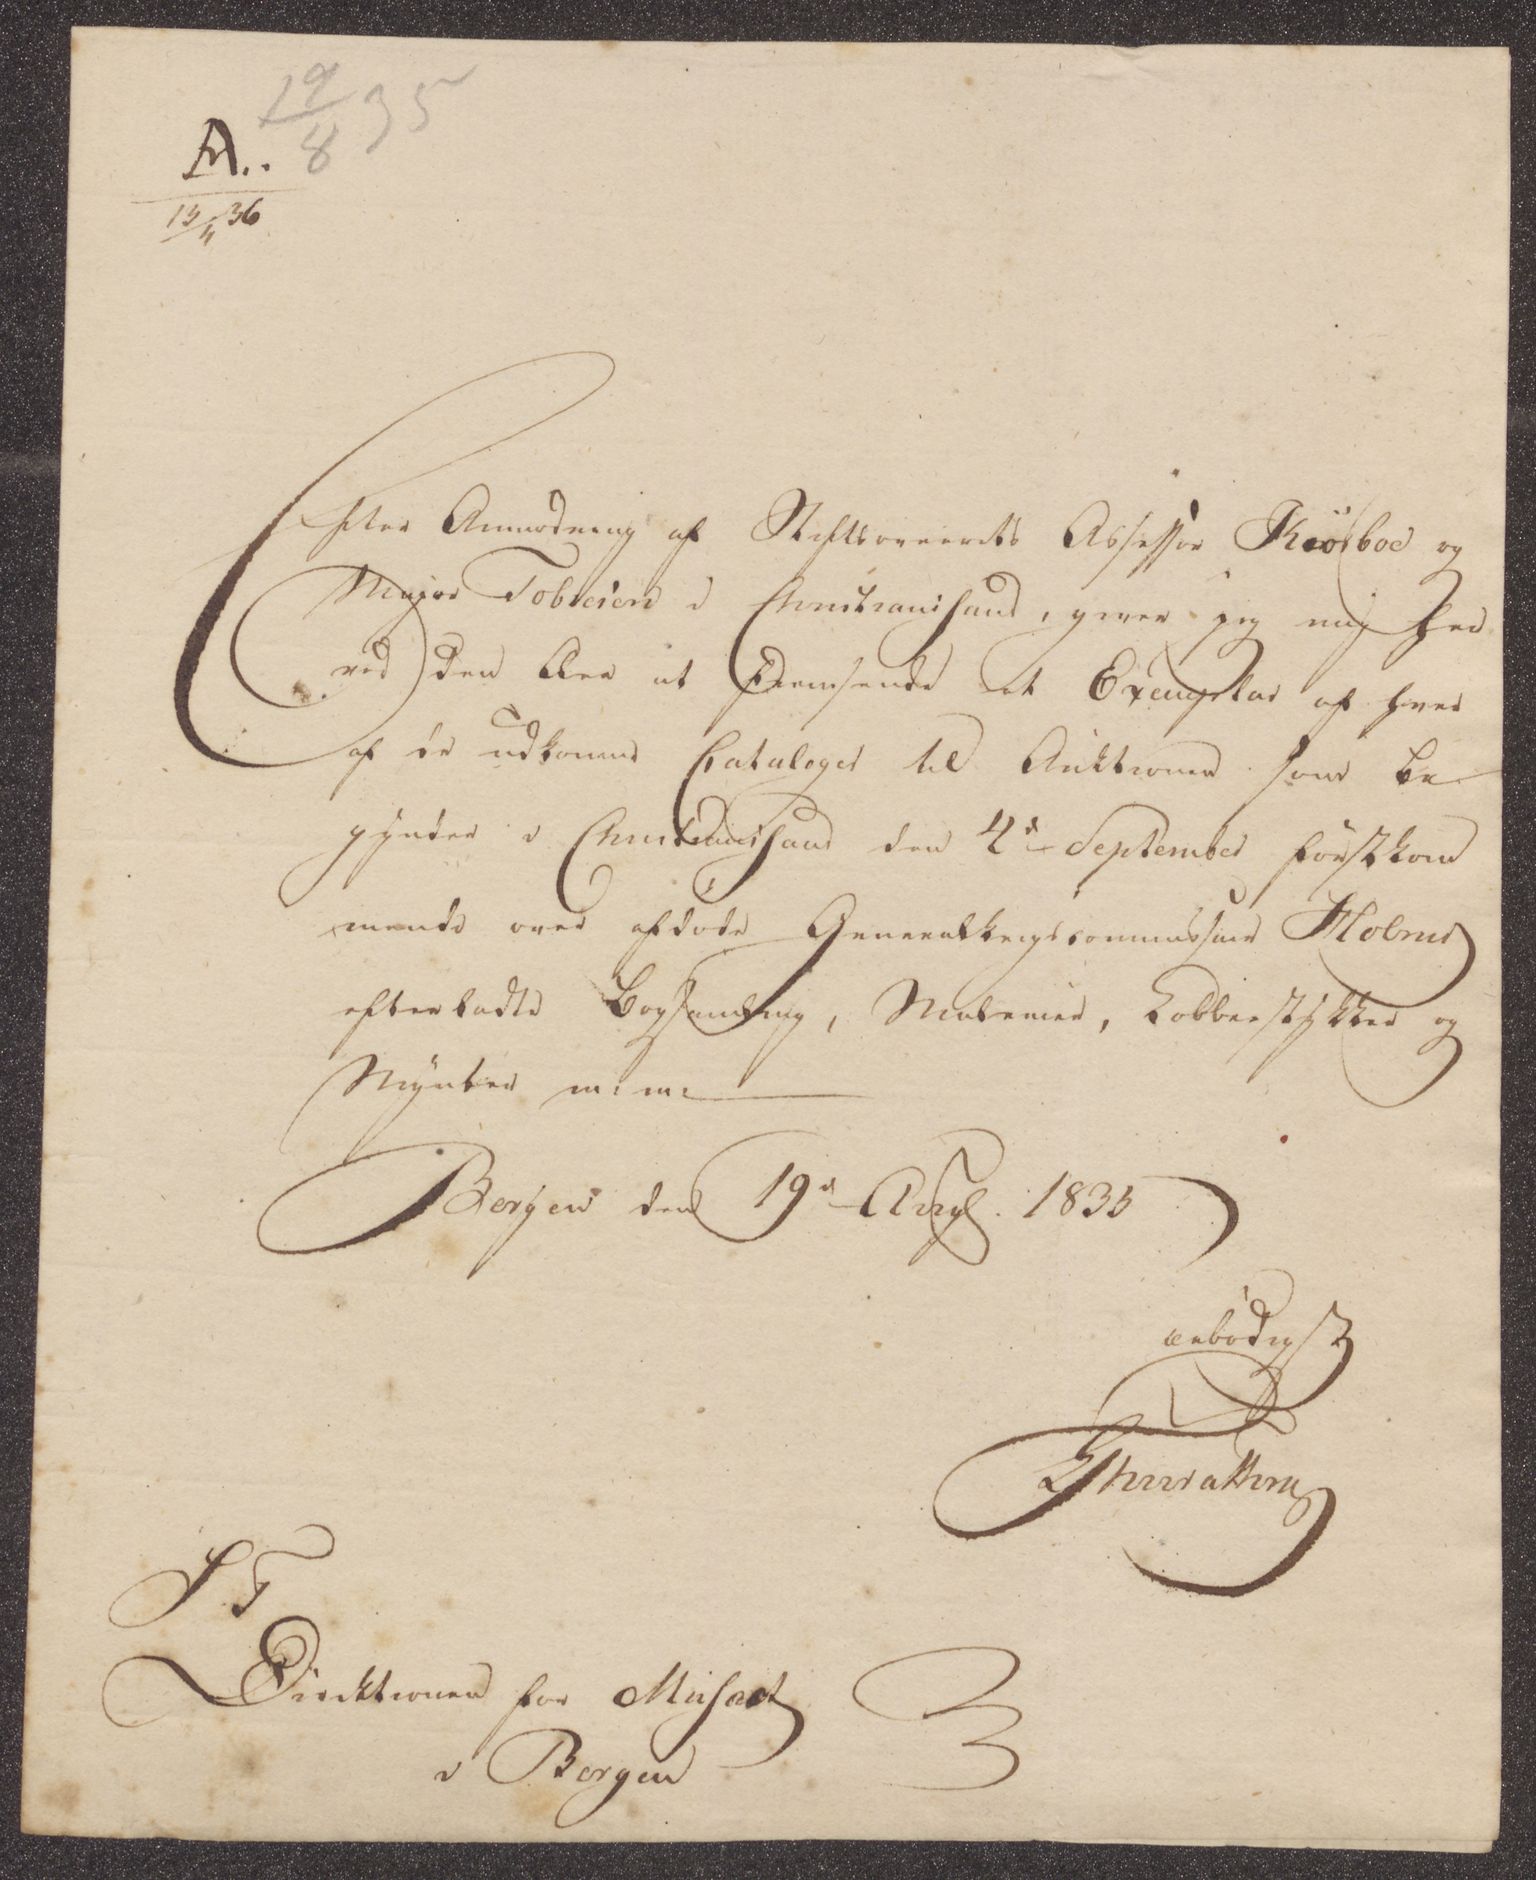 19/8 35
A..
13/4 36
Efter Anmodning af Stiftsoverrets Assessor Kiörboe og
Major Tobiesen i Christiansand, giver jeg mig her
ved den Ære at fremsende et Exemplar af hver
af de udkomne Cataloger til Auktionen som be
gynder i Christiansand den 4de September förstkom
mende over afdöde Generalkrigscommissair Holms
efterladte Bogsamling, Malerier, Kobberstykker og
Mynter m: m:
Bergen den 19de Augl. 1835
ærbödigst
S T
Direktionen for Museet
i Bergen